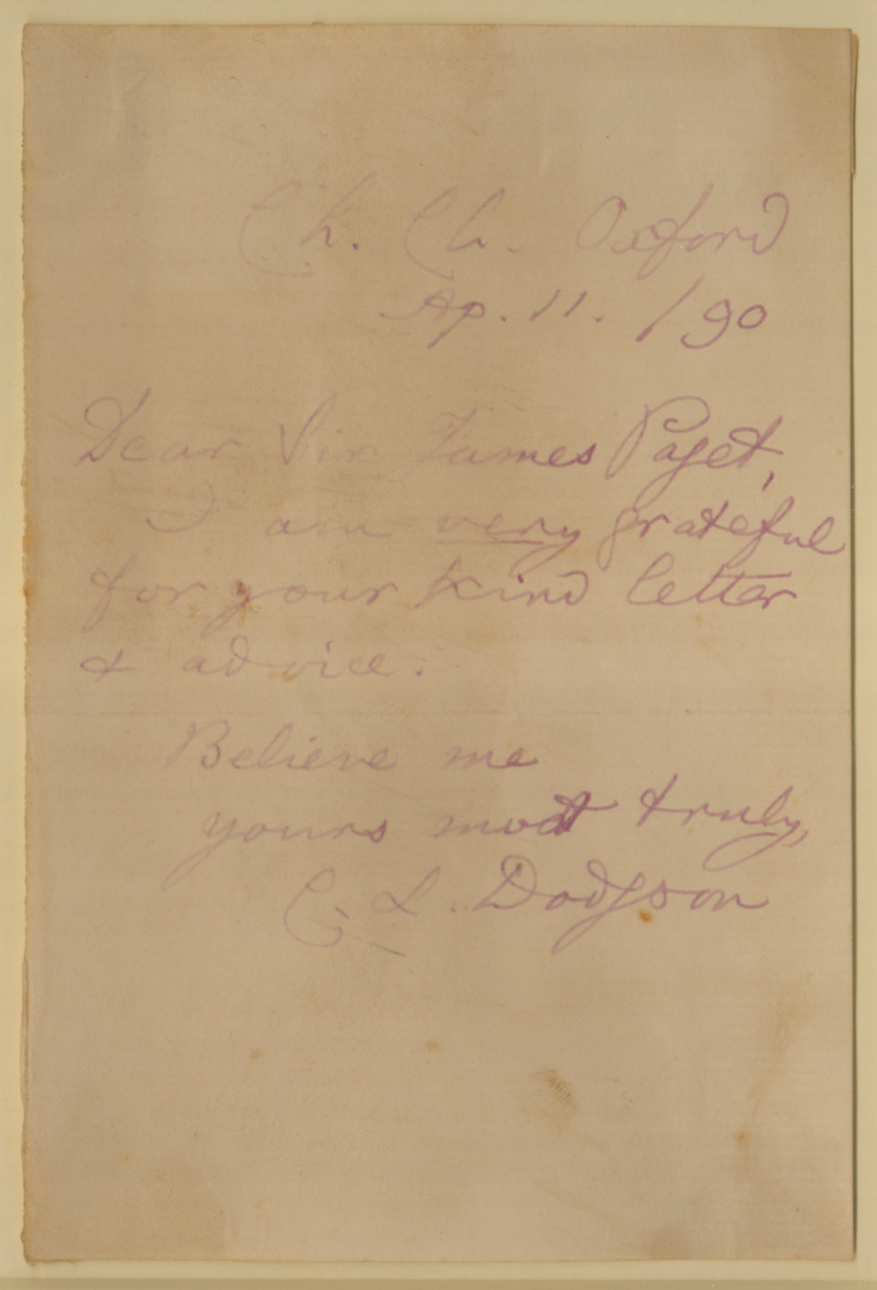 Ch. Ch. Oxford
Ap. 11. /90
Dear Sir James Paget,
I am very grateful
for your kind letter
& advice.
Believe me
yours most truly,
C. L. Dodgson